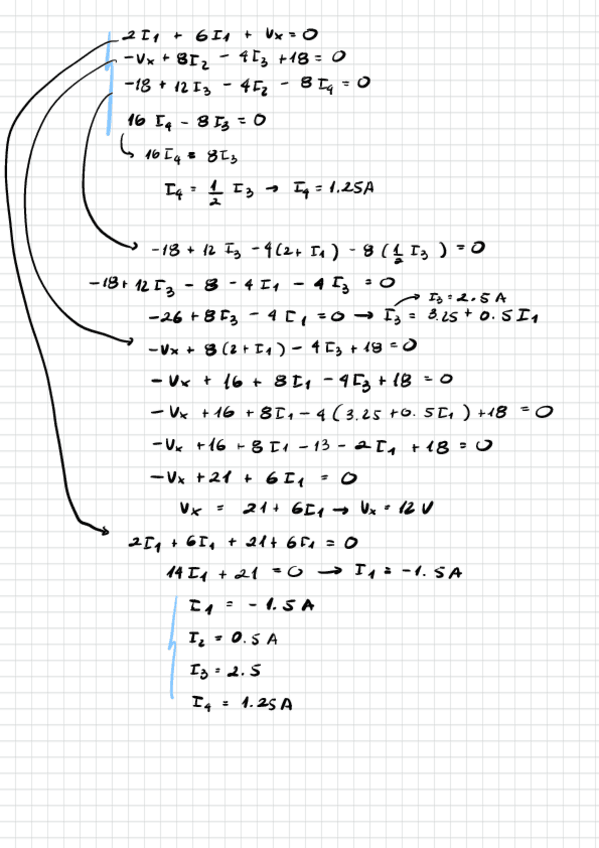 2I₁ + 6I₁ + Vx = 0
-Vx + 8I₂ - 4I₃ + 18 = 0
-18 + 12I₃ - 4I₂ - 8I₄ = 0
16 I₄ - 8I₃ = 0
16 I₄ = 8I₃
I₄ = 1/2 I₃ → I₄ = 1.25A
-18 + 12 I₃ - 4(2+ I₁) - 8 (1/2 I₃) = 0
-18 + 12 I₃ - 8 - 4 I₁ - 4 I₃ = 0
I₃ = 2.5 A
-26 + 8I₃ - 4 I₁ = 0 → I₃ = 3.25 + 0.5 I₁
-Vx + 8(2+I₁) - 4I₃ + 18 = 0
-Vx + 16 + 8I₁ - 4I₃ + 18 = 0
-Vx + 16 + 8I₁ - 4 (3.25 + 0.5I₁) + 18 = 0
-Vx + 16 + 8I₁ - 13 - 2I₁ + 18 = 0
-Vx + 21 + 6I₁ = 0
Vx = 21 + 6I₁ → Vx = 12 V
2I₁ + 6I₁ + 21 + 6I₁ = 0
14I₁ + 21 = 0 → I₁ = -1.5 A
I₁ = - 1.5 A
I₂ = 0.5 A
I₃ = 2.5
I₄ = 1.25A